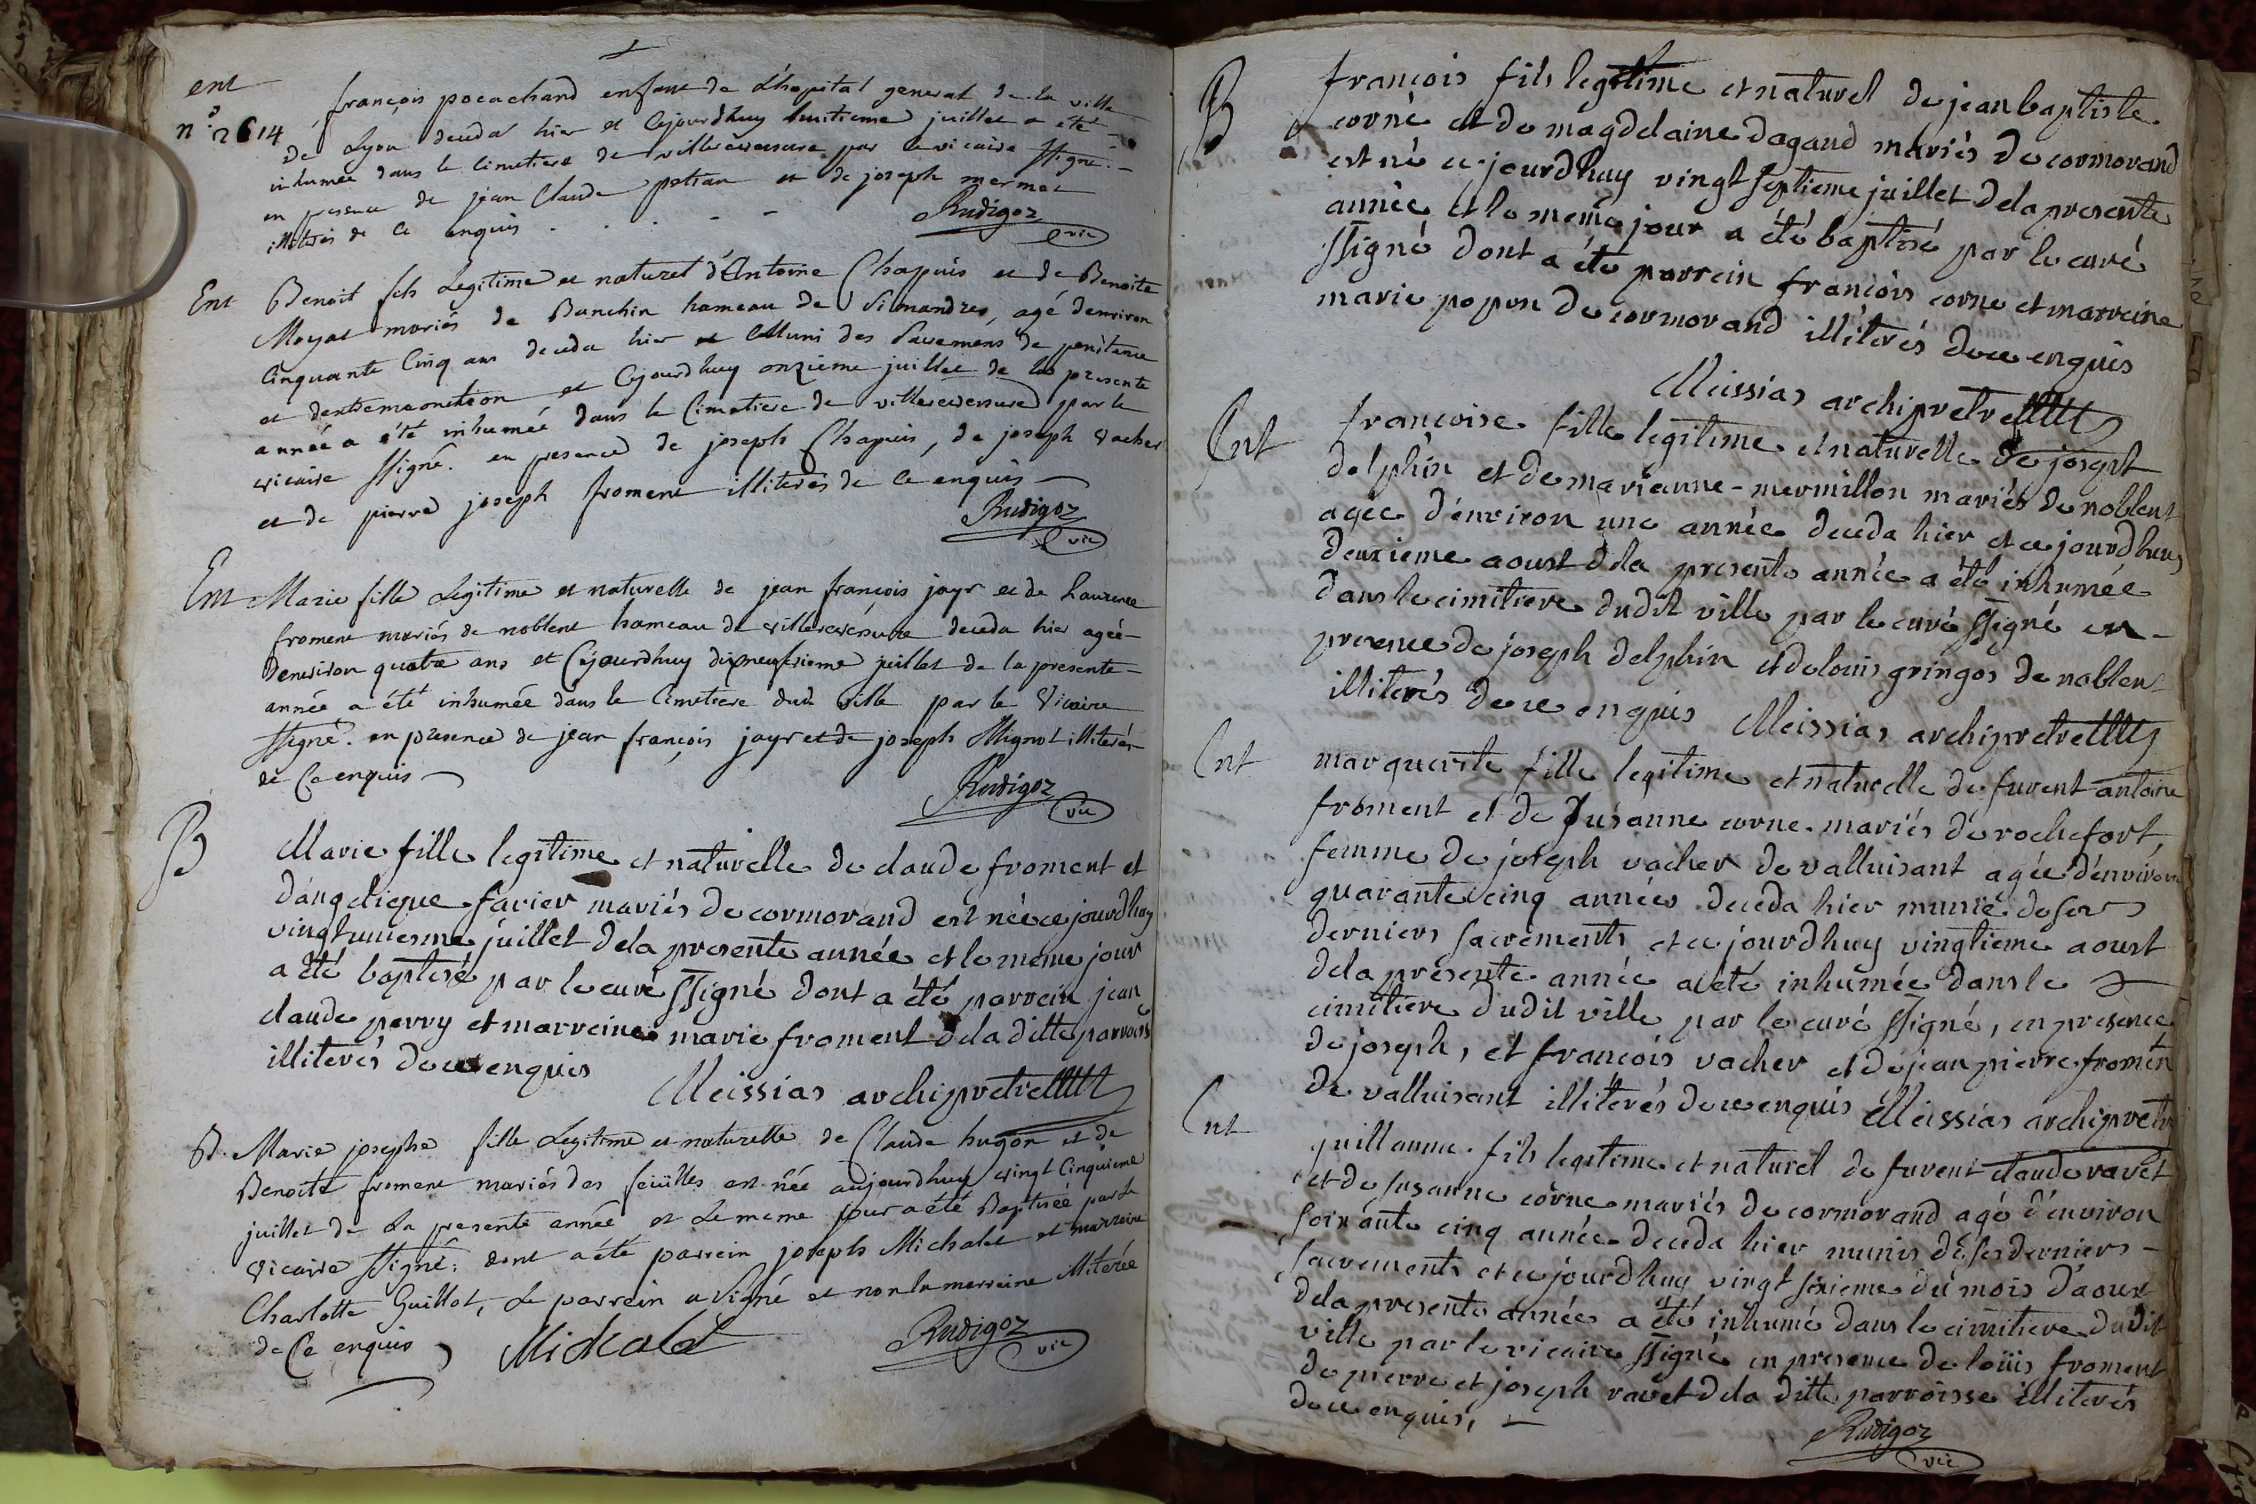 ent
n° 2614
françois pocachard enfant de L'hopital general de la ville
de Lyon deceda hier et Cejourdhuy huitieme juillet a été
inhumée dans le Cimetiere de villereversure par le vicaire ssigné.
en presence de jean Claude et de joseph mermet
illiterés de ce enquis
Rudigoz
vic
Ent
Benoit fils Legitime et naturel d'Antoine Chapuis et de Benoite
Moyat mariés de Banchin hameau de Simandres, agé denviron
Cinquante Cinq ans deceda hier et Muni des Sacremens de penitence
et dextremeonction et Cejourdhuy onzieme juillet de la presente
année a été inhumée dans le Cimetiere de villereversure par le
vicaire ssigné. en presence de joseph Chapuis, de joseph vacher
et de pierre joseph froment illiterés de ce enquis
Rudigoz
vic
Ent
Marie fille Legitime et naturelle de jean françois jayr et de Laurence
froment mariés de noblent hameau de villereversure deceda hier ageé
denviron quatre ans et Cejourdhuy dixneufvieme juillet de la presente
année a été inhumée dans le Cimetiere dud ville par le Vicaire
ssigné. en presence de jean françois jayr et de joseph Mignot illiterés
de Ce enquis
Rudigoz
vic
B
Marie fille legitime et naturelle de claude froment et
d'angelique favier mariés de cormorand est née ce jourdhuy
vingtuniesme juillet dela presente année et le meme jour
a été baptisé par le curé ssigné dont a été parrein jean
claude perry et marreine marie froment dela ditte parroiss
illiterés de ce enquis
Meissias archipretre
B.
Marie josephe fille Legitime et naturelle de Claude hugon et de
Benoite froment mariés des feüilles est née aujourdhuy vingt Cinquieme
juillet de La presente année et Le meme jour a été Baptisée par le
vicaire ssigné; dont a été parrein joseph Michalet et marreine
Charlotte Guillot, Le parrein a signé et non la marreine illiterée
de Ce enquis
Michalet
Rudigoz
vic
B
françois fils legitime et naturel de jean baptiste
corne et de magdelaine dagand mariés de cormorand
est né ce jourdhuy vingt septieme juillet dela presente
année et le meme jour a été baptisé par le curé
ssigné dont a été parrein françois corne et marreine
marie popon de cormorand illiterés de ce enquis
Meissias archipretre
Ent
françoise fille legitime et naturelle de joseph
delphin et de marianne mermillon mariés de noblent
agée d'environ une année deceda hier et ce jourdhuy
deuxieme aoust dela presente année a été inhumée
dans le cimitiere dudit ville par le curé ssigné en
presence de joseph delphin et de louis gringos de noblent
illiterés de ce enquis
Meissias archipretre
Ent
marguerite fille legitime et naturelle de furent antoine
froment et de susanne corne mariés de rochefort,
femme de joseph vacher de valluisant agée d'environ
quarante cinq années deceda hier munie de ses
derniers sacrements et ce jourdhuy vingtieme aoust
dela présente année a été inhumée dans le
cimitiere dudit ville par le curé ssigné, en presence
de joseph, et françois vacher et de jean pierre froment
de valluisant illiterés de ce enquis
Meissias archipretre
Ent
guillaume fils legitime et naturel de furent claude ravet
et de susanne corne mariés de cormorand agé d'environ
soixante cinq année deceda hier munis de ses derniers
sacrements et ce jourdhuy vingt sixieme du mois d'aoust
dela presente année a été inhumé dans le cimitiere dudit
ville par le vicaire ssigné en presence de loüis froment
de pierre et joseph ravet dela ditte parroisse illiterés
de ce enquis,
Rudigoz
vic